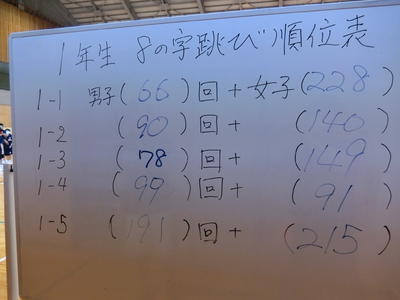 1年生 8の字跳び順位表
1-1 男子(66)回+女子(228)
1-2 (90)回+(140)
1-3 (78)回+(149)
1-4 (99)回+(91)
1-5 (191)回+(215)